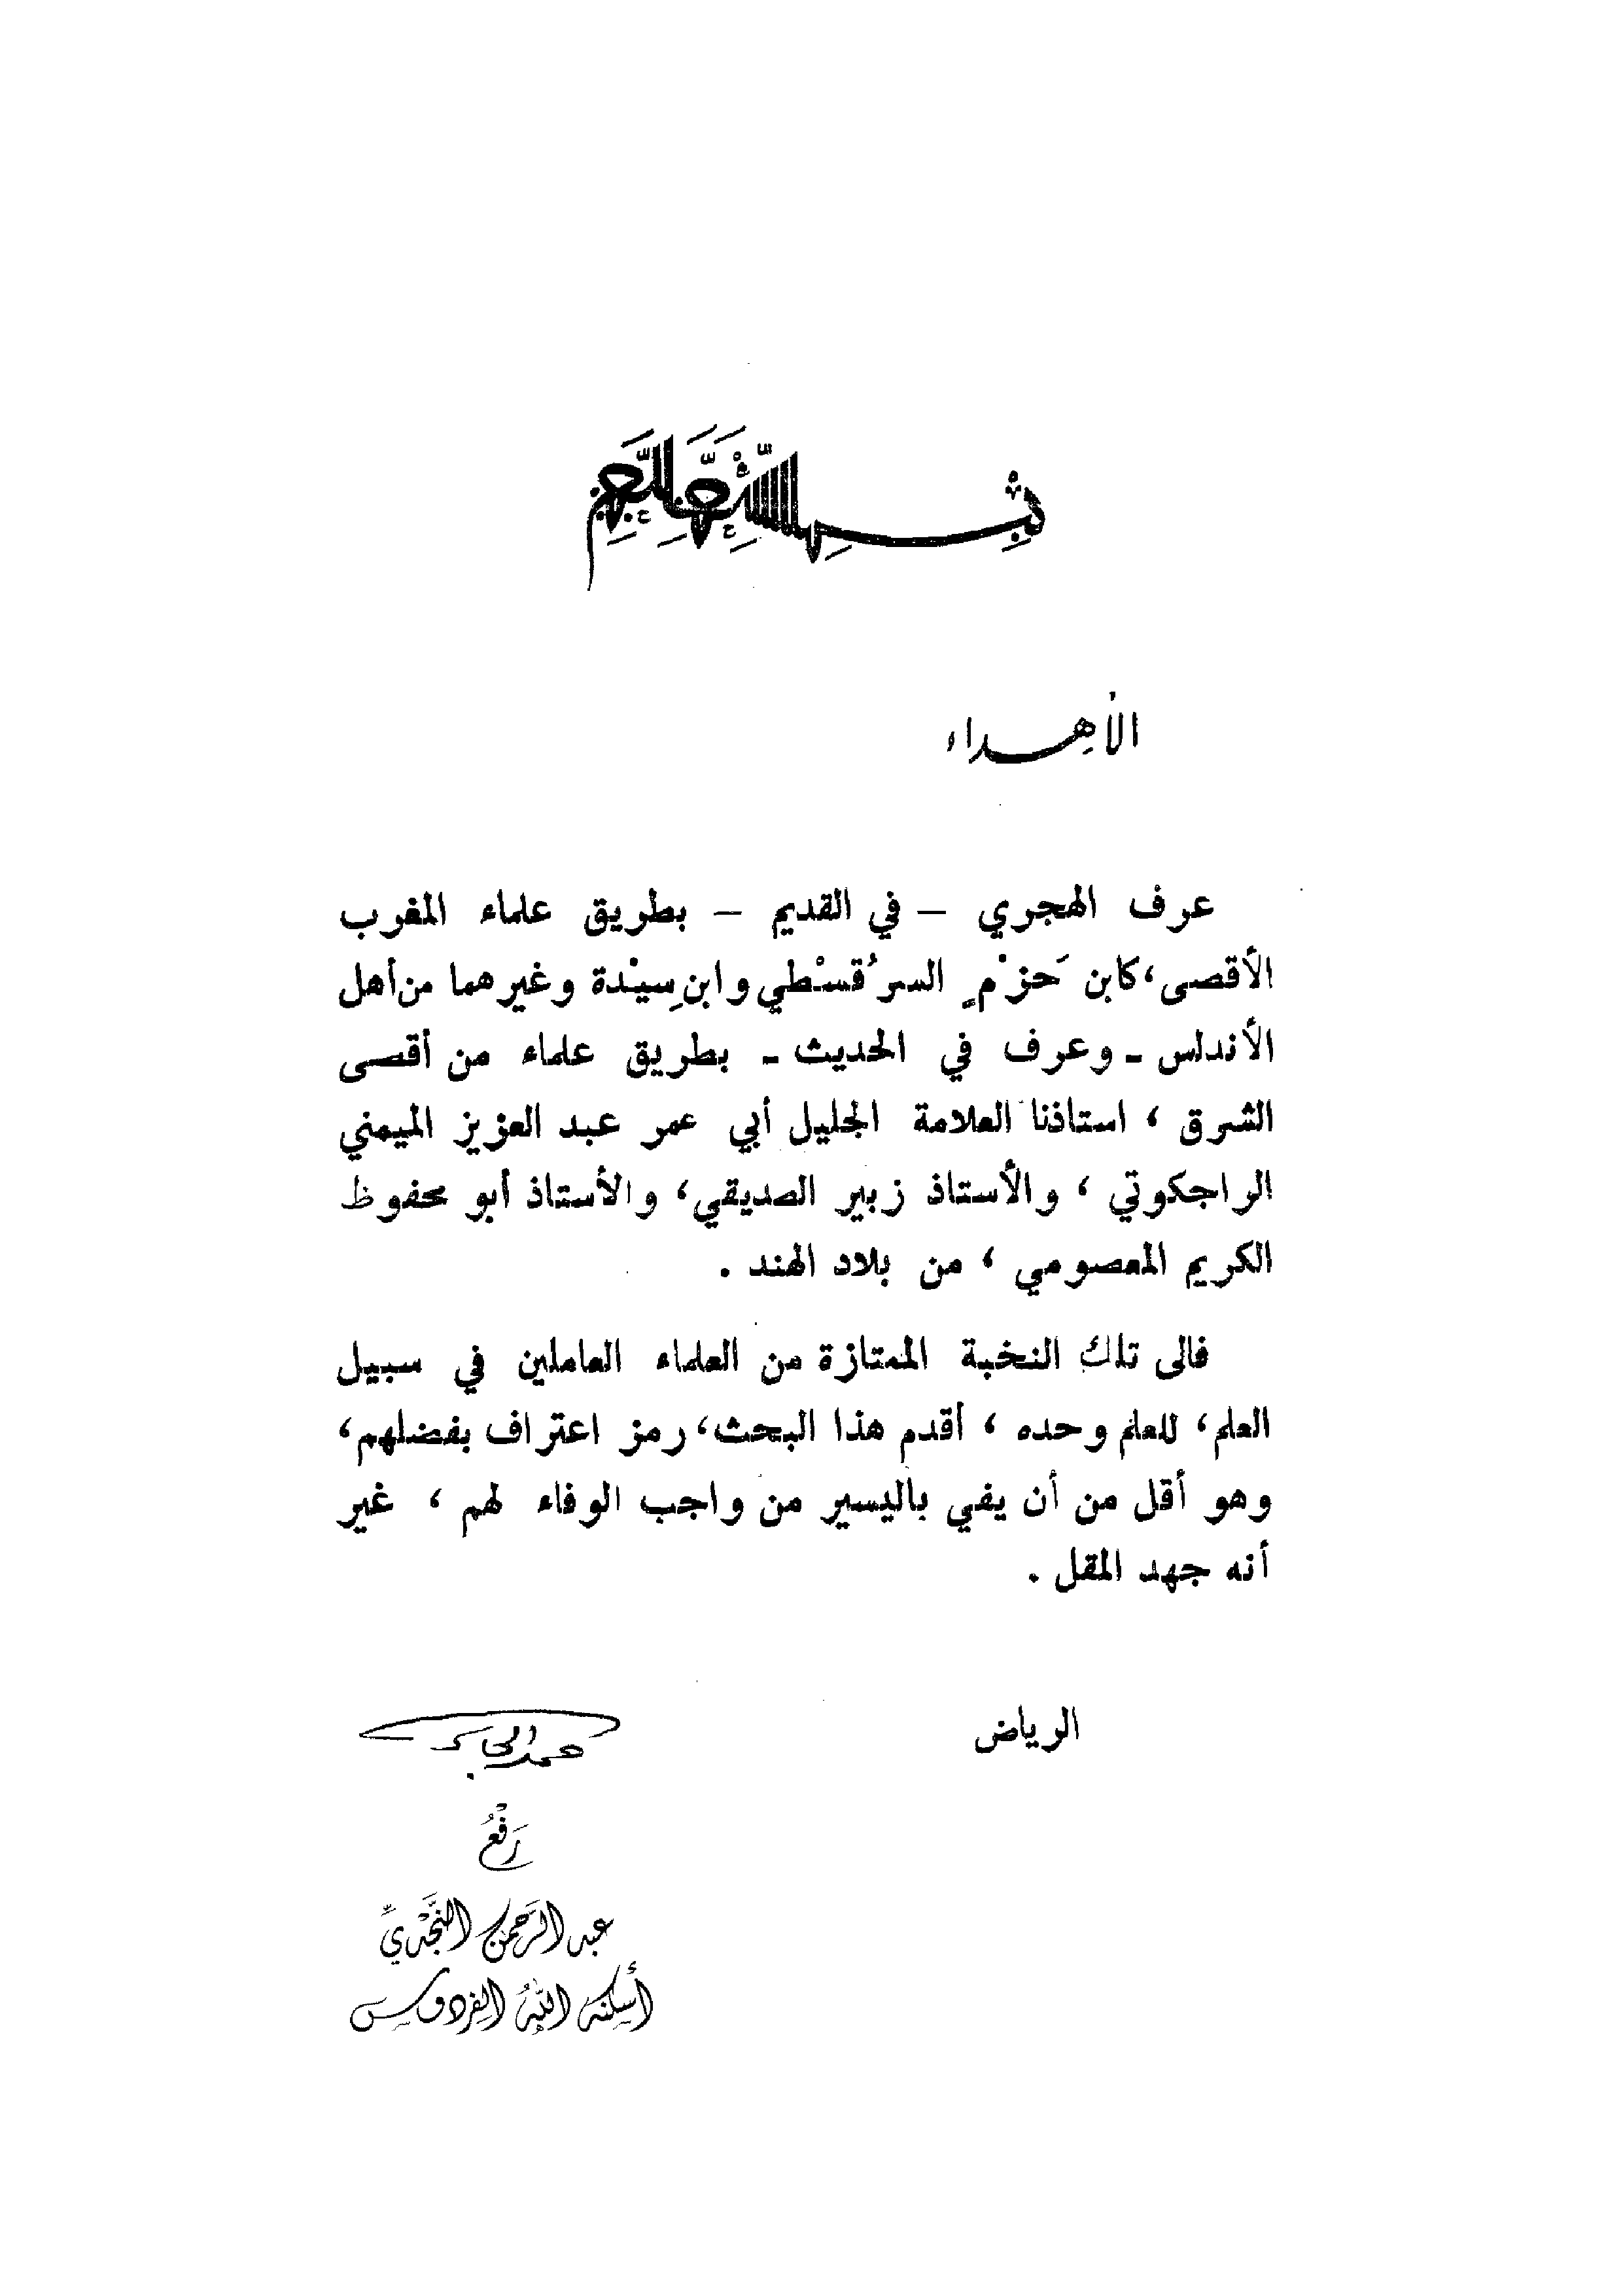 بِسْمِ اللَّهِ الرَّحْمَٰنِ الرَّحِيمِ
الأهداء
عرف الهجري – في القديم – بطريق علماء المغرب
الأقصى، كابن حَزْمٍ السرقُسْطي وابنِ سيْدة وغيرهما من أهل
الأندلس - وعرف في الحديث - بطريق علماء من أقصى
الشرق ، استاذنا العلامة الجليل أبي عمر عبد العزيز الميمني
الراجكوتي ، والأستاذ زبير الصديقي، والأستاذ أبو محفوظ
الكريم المعصومي ، من بلاد الهند .
فالى تلك النخبة الممتازة من العلماء العاملين في سبيل
العلم، للعلم وحده ، أقدم هذا البحث، رمز اعتراف بفضلهم،
وهو أقل من أن يفي باليسير من واجب الوفاء لهم ، غير
أنه جهد المقل .
الرياض
حمد الجاسر
رَفْعُ
عبد الرَّحمن النَّجْدِيِّ
أسكنه اللهُ الفردوس